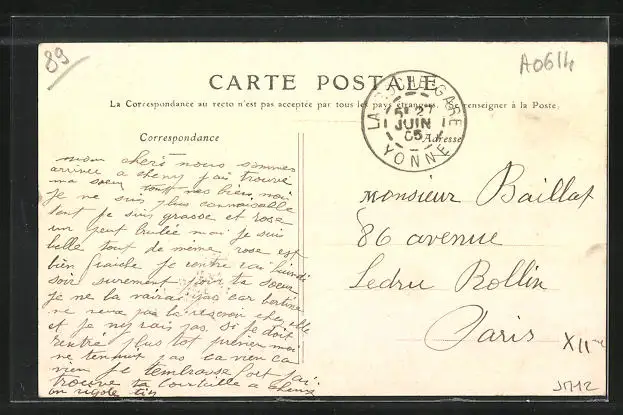 89
A0614
CARTE POSTALE
La Correspondance au recto n'est pas acceptée par tous les pays étrangers. Se renseigner à la Poste.
LA ROCHE GARE
27
JUIN
05
YONNE
Correspondance
Adresse
mon cheré nous sommes
arrivee a cheny j'ai trouve
ma soeur tout nes bien moi
je ne suis plus connaisable
tent je suis grasse et rose
un peut brulée mai je suis
belle tout de meme rose est
bien fraiche je rentre rai lundi
soir surement voir ta soeur
je ne la varai pas car bertine
ne veux pas la resevoir chez elle
et je ny vais pas si je doit
rentré plus tot previen moi
ne tenuit pas ca rien ca
rien je tembrasse fort j'ai
trouve ta
on rigole bien
Monsieur Baillat
86 avenue
Ledru Rollin
Paris
XII